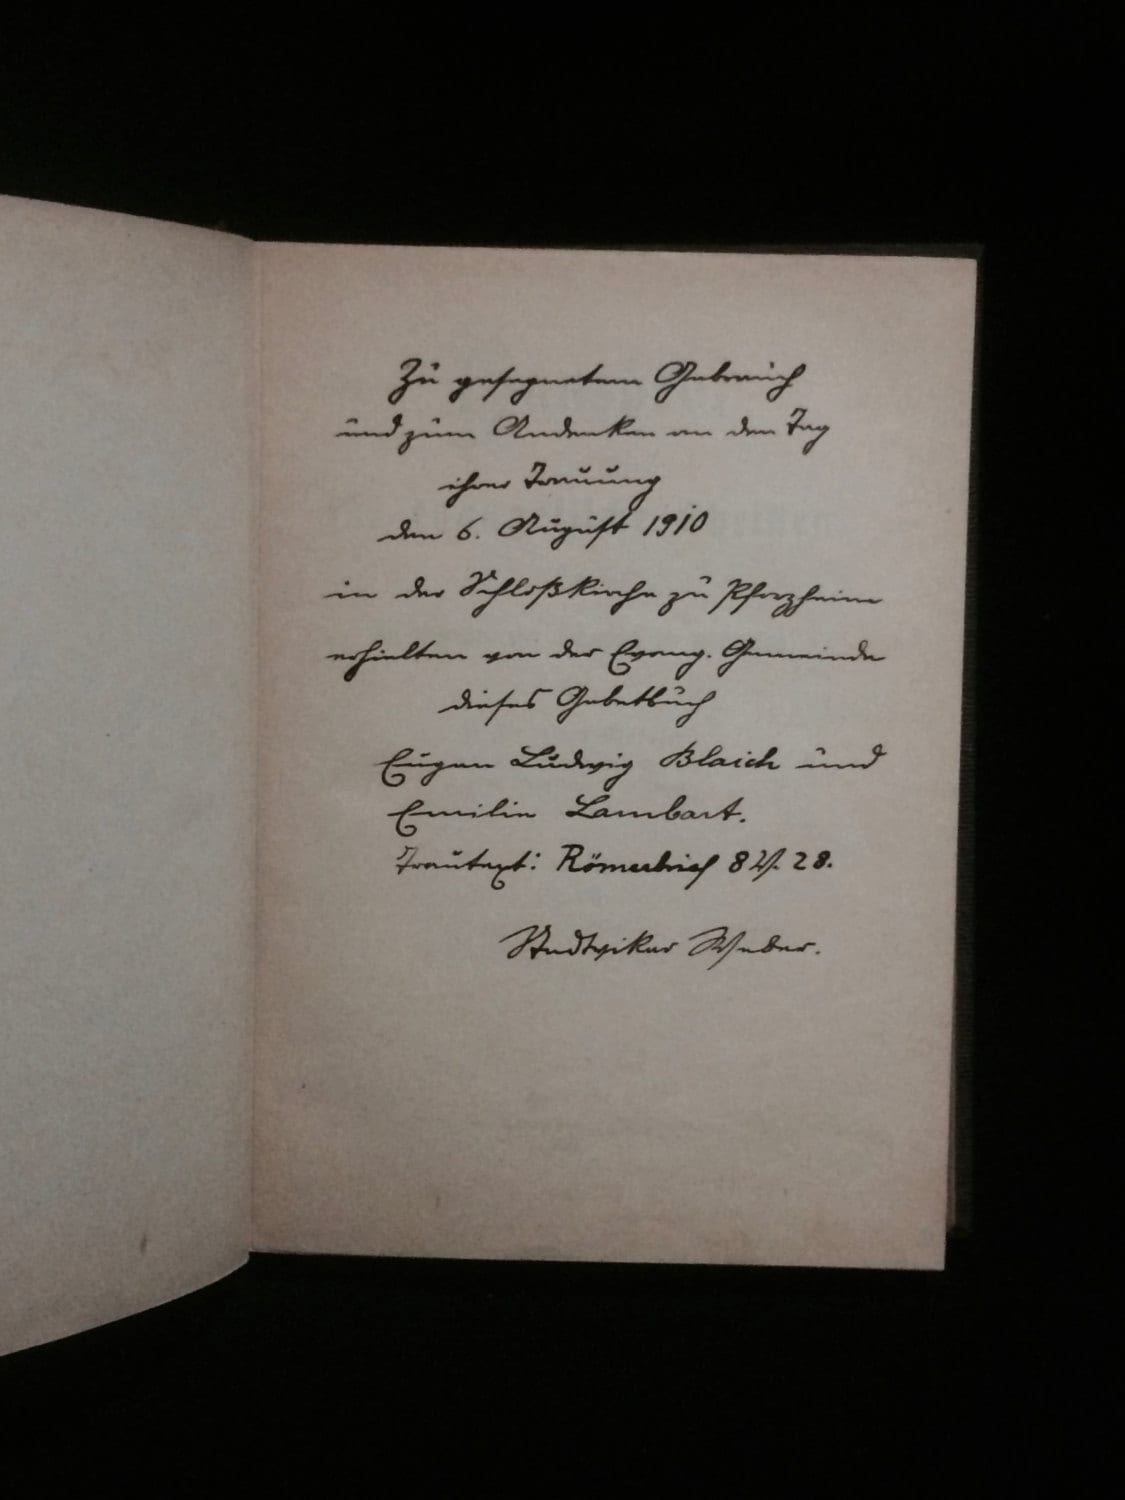 Zu gesegnetem Gebrauch
und zum Andenken an den Tag
ihrer Trauung
den 6. August 1910
in der Schloßkirche zu Pforzheim
erhielten von der Evang. Gemeinde
dieses Gebetbuch
Eugen Ludwig Blaich und
Emilie Lambart.
Trautext: Römerbrief 8 V. 28.
Stadtvikar Weber.